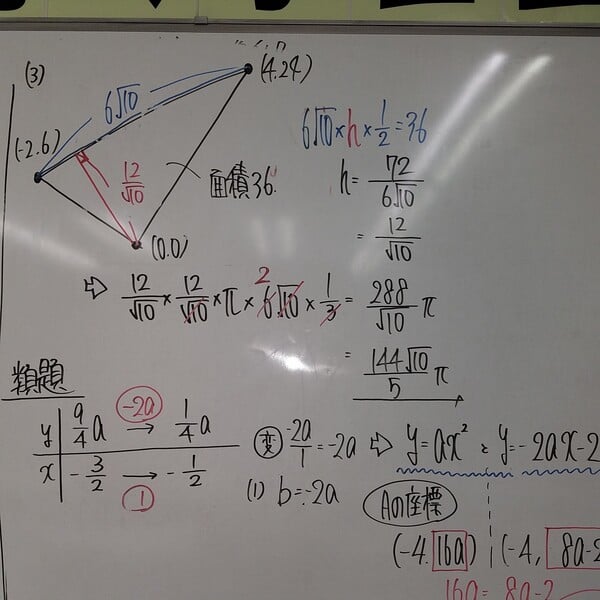 (3)
(4.24)
6√10
(-2.6)
12/√10
面積36
(0.0)
6√10×h×1/2=36
h=72/6√10
=12/√10
⇨ 12/√10×12/√10×π×6√10×1/3=288/√10π
2
=144√10/5π
類題
y 9/4a → 1/4a
-2a
x -3/2 → -1/2
1
変 -2a/1=-2a ⇨ y=ax²と y=-2ax-2
(1) b=-2a
Aの座標
(-4.16a) (-4, 8a-2
16a= 8a-2